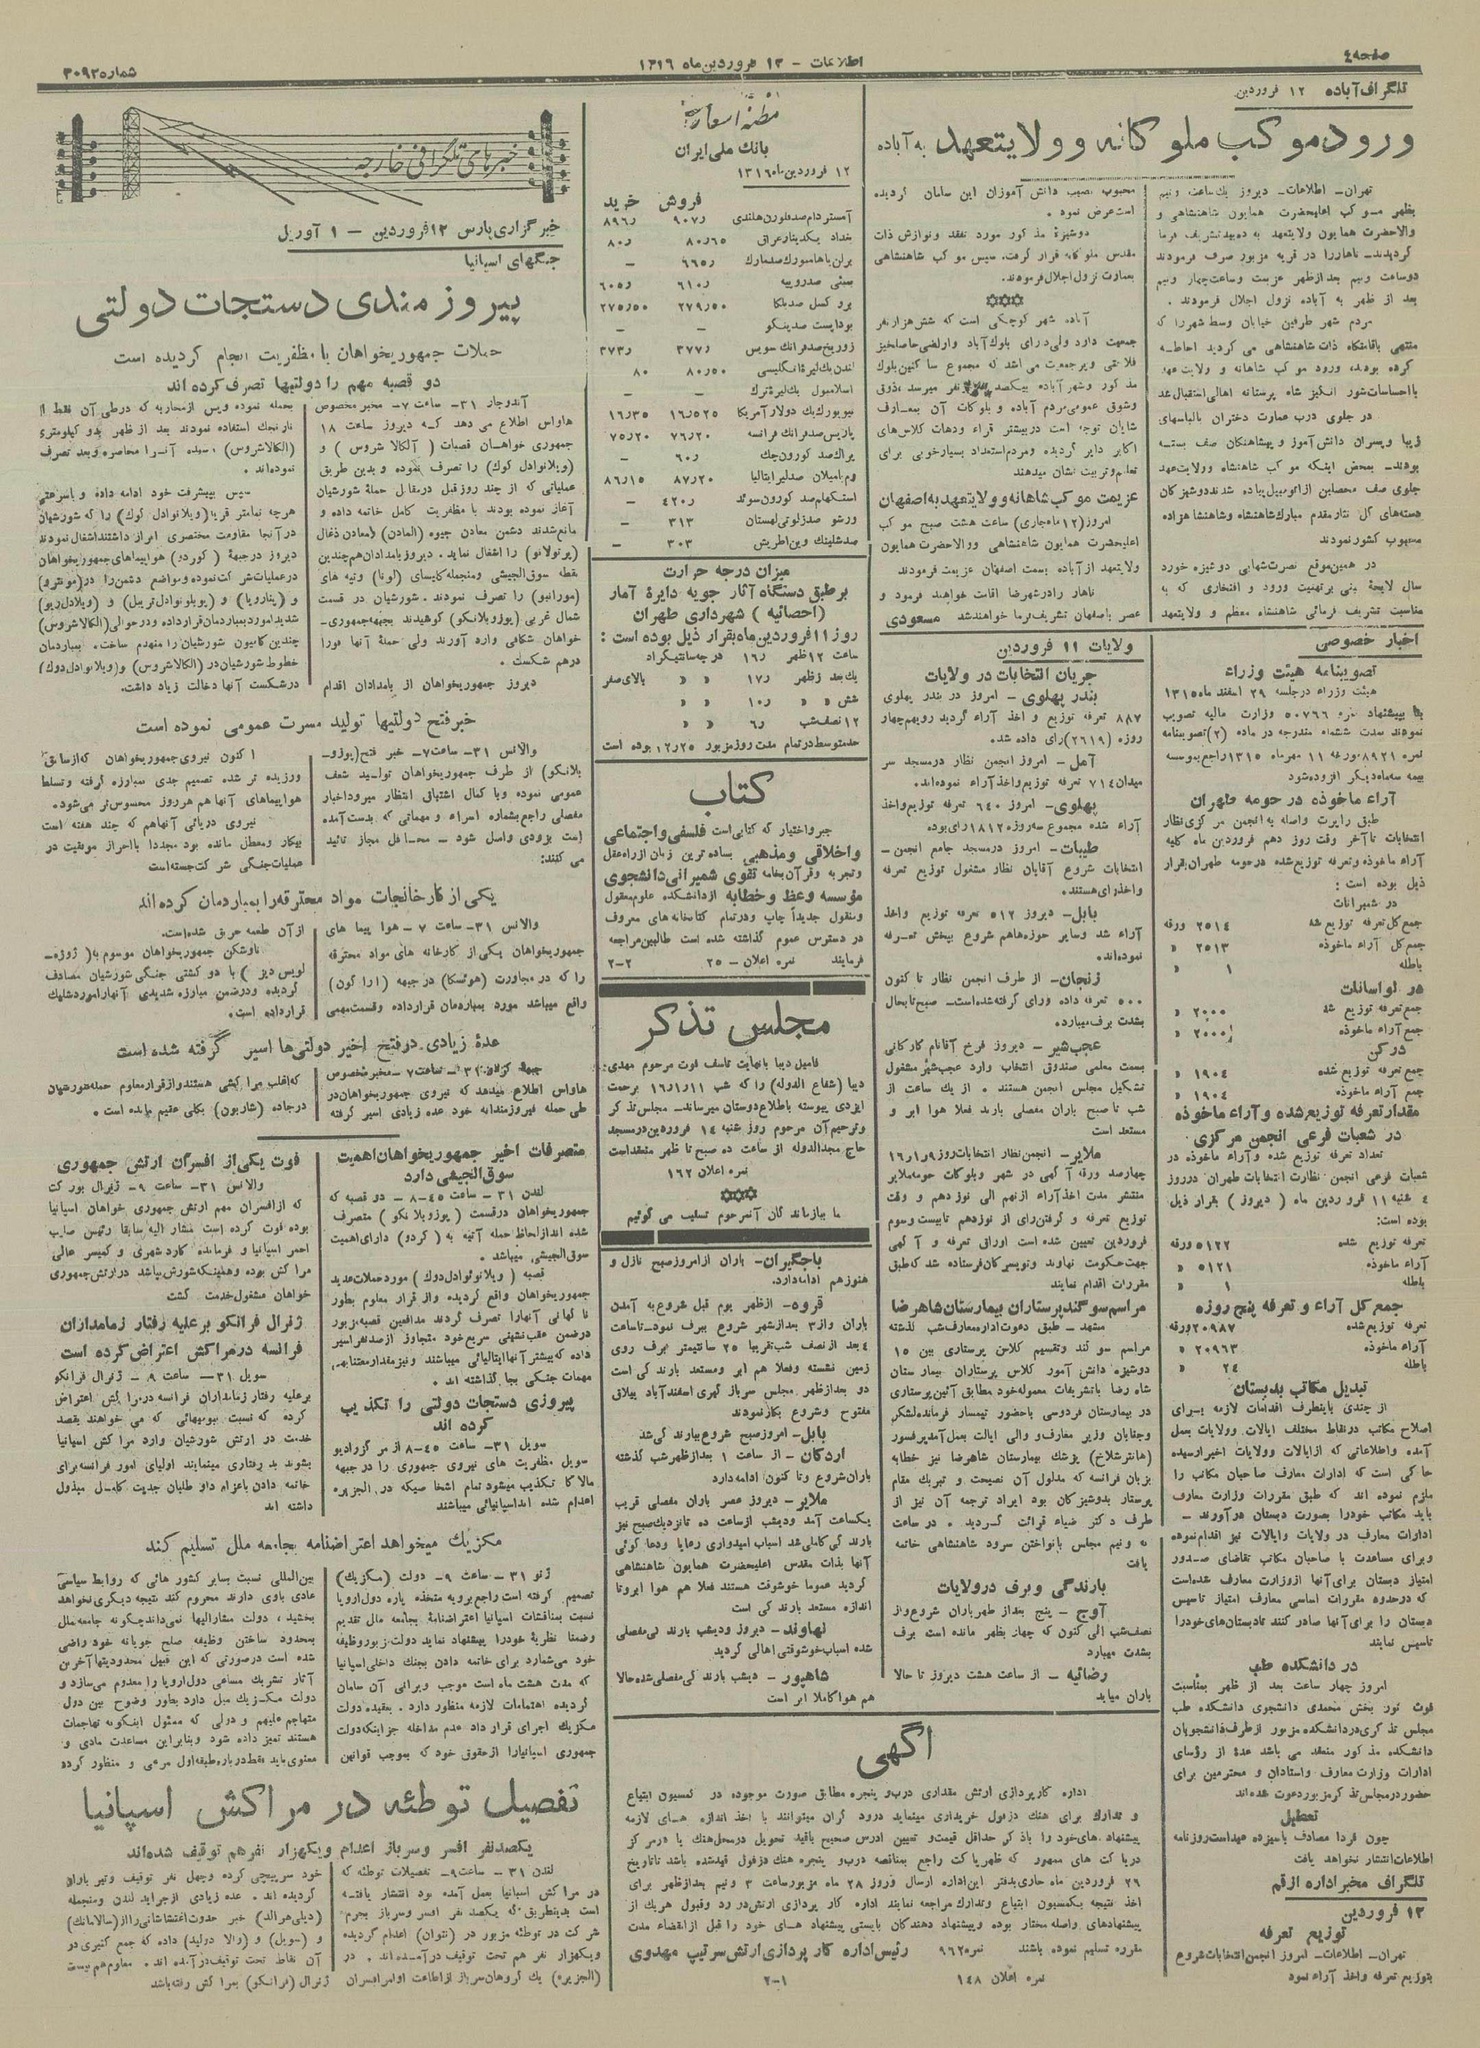 صفحه ٤
اطلاعات - ۱۳ فروردین ماه ۱۳۱۶
شماره ۳۰۹۲
تلگراف آباده ۱۲ فروردین
ورود موکب ملوکانه وولایتعهد به آباده
تهران- اطلاعات- دیروز یکساعت ونیم
بظهر موکب اعلیحضرت همایون شاهنشاهی و
والاحضرت همایون ولایتعهد به دهبید تشریف فرما
گردیدند- ناهاررا در قریه مزبور صرف فرمودند
دوساعت ونیم بعدازظهر عزیمت وساعت چهار ونیم
بعد از ظهر به آباده نزول اجلال فرمودند.
مردم شهر طرفین خیابان وسط شهررا که
منتهی باقامتگاه ذات شاهنشاهی می گردید احاطه
کرده بودند، ورود موکب شاهانه و ولایتعهد
بااحساسات شور انگیز شاه پرستانه اهالی استقبال شد
در جلوی درب عمارت دختران بالباسهای
زیبا وپسران دانش آموز و پیشاهنگان صف بسته
بودند- بمحض اینکه موکب شاهنشاه وولایتعهد
جلوی صف محصلین ازاتومبیل پیاده شدند دوشیزگان
دسته های گل نثار مقدم مبارک شاهنشاه وشاهنشاهزاده
محبوب کشور نمودند
در همین موقع نصرت شهابی دوشیزه خورد
سال لایحهٔ بنی برتهنیت ورود و افتخاری که به
مناسبت تشریف فرمائی شاهنشاه معظم و ولایتعهد
محبوب نصیب دانش آموزان این سامان گردیده
است عرض نمود.
دوشیزهٔ مذکور مورد تفقد ونوازش ذات
مقدس ملوکانه قرار گرفت. سپس موکب شاهنشاهی
بعمارت نزول اجلال فرمودند.
آباده شهر کوچکی است که شش هزار نفر
جمعیت دارد ولی دارای بلوک آباد واراضی حاصلخیز
فلاحتی وپرجمعیت می باشد که مجموع ساکنین بلوک
وشوق عمومی مردم آباده و بلوکات آن بمعارف
شایان توجه است دربیشتر قراء ودهات کلاس های
اکابر دایر گردیده ومردم استعداد بسیار خوبی برای
تعلم وتربیت نشان میدهند
عزیمت موکب شاهانه وولایتعهد به اصفهان
امروز (۱۲ ماه جاری) ساعت هشت صبح موکب
اعلیحضرت همایون شاهنشاهی ووالاحضرت همایون
ولایتعهد از آباده بسمت اصفهان عزیمت فرمودند
ناهار رادرشهرضا اقامت خواهند فرمود و
عصر باصفهان تشریف فرما خواهند شد مسعودی
اخبار خصوصی
تصویبنامه هیئت وزراء
هیئت وزراء درجلسه ۲۹ اسفند ماه ۱۳۱۵
بنا بپیشنهاد نمره ۵۰۷۶۶ وزارت مالیه تصویب
نمودند مدت ششماه مندرجه در ماده (۲) تصویبنامه
نمره ۸۹۲۱ مورخه ۱۱ مهرماه ۱۳۱۵ راجع بموسسه
بیمه سه ماه دیگر افزوده شود
آراء ماخوذه در حومه طهران
طبق راپرت واصله به انجمن مرکزی نظار
انتخابات تاآخر وقت روز دهم فروردین ماه کلیه
آراء ماخوذه وتعرفه توزیع شده درحومه طهران بقرار
ذیل بوده است:
در شمیرانات
جمع کل تعرفه توزیع شده ۲۵۱٤ ورقه
جمع کل آراء ماخوذه ۲۵۱۳ «
باطله ۱ «
در لواسانات
جمع تعرفه توزیع شده ۲۰۰۰ «
جمع آراء ماخوذه ۲۰۰۰ «
در کن
جمع تعرفه توزیع شده ۱۹۰٤ «
جمع آراء ماخوذه ۱۹۰٤ «
مقدار تعرفه توزیع شده و آراء ماخوذه
در شعبات فرعی انجمن مرکزی
تعداد تعرفه توزیع شده وآراء ماخوذه در
شعبات فرعی انجمن نظارت انتخابات طهران درروز
٤ شنبه ۱۱ فروردین ماه (دیروز) بقرار ذیل
بوده است:
تعرفه توزیع شده ۵۱۲۲ ورقه
آراء ماخوذه ۵۱۲۱ «
باطله ۱ «
جمع کل آراء و تعرفه پنج روزه
تعرفه توزیع شده ۲۰۹۸۷ ورقه
آراء ماخوذه ۲۰۹۶۳ «
باطله ۲٤ «
تبدیل مکاتب بدبستان
از چندی باینطرف اقدامات لازمه برای
اصلاح مکاتب درنقاط مختلف ایالات وولایات بعمل
آمده واطلاعاتی که ازایالات وولایات اخیر رسیده
حاکی است که ادارات معارف صاحبان مکاتب را
ملزم نموده اند که طبق مقررات وزارت معارف
باید مکاتب خودرا بصورت دبستان درآورند-
ادارات معارف در ولایات وایالات نیز اقدام نموده
وبرای مساعدت با صاحبان مکاتب تقاضای صدور
امتیاز دبستان برای آنها ازوزارت معارف شده است
که درحدود مقررات اساسی معارف امتیاز تاسیس
دبستان را برای آنها صادر کنند تادبستان های خودرا
تاسیس نمایند
در دانشکده طب
امروز چهار ساعت بعد از ظهر بمناسبت
فوت نور بخش محمدی دانشجوی دانشکده طب
مجلس تذکری دردانشکده مزبور ازطرف دانشجویان
دانشکده مذکور منعقد می باشد عدهٔ از رؤسای
ادارات وزارت معارف واستادان و محترمین برای
حضور درمجلس تذکر مزبور دعوت شده اند
تعطیل
چون فردا مصادف باسیزده عید است روزنامه
اطلاعات انتشار نخواهد یافت
تلگراف مخبر اداره از قم
۱۲ فروردین
توزیع تعرفه
تهران- اطلاعات- امروز انجمن انتخابات شروع
بتوزیع تعرفه واخذ آراء نمود
ولایات ۱۱ فروردین
جریان انتخابات در ولایات
بندر پهلوی- امروز در بندر پهلوی
۸۸۷ تعرفه توزیع و اخذ آراء گردید رویهم چهار
روزه (۲۶۱۹) رای داده شد.
آمل- امروز انجمن نظار درمسجد سر
میدان ۷۱٤ تعرفه توزیع واخذ آراء نموده اند.
پهلوی- امروز ٦٤۰ تعرفه توزیع واخذ
آراء شده مجموع سه روزه ۱۸۱۲ رای بوده
طیبات- امروز درمسجد جامع انجمن
انتخابات شروع آقایان نظار مشغول توزیع تعرفه
واخذ رای هستند.
بابل- دیروز ۵۱۲ تعرفه توزیع واخذ
آراء شد وسایر حوزه هاهم شروع بپخش تعرفه
نموده اند.
زنجان- از طرف انجمن نظار تا کنون
۵۰۰ تعرفه داده ورای گرفته شده است- صبح تابحال
بشدت برف میبارد.
عجب شیر- دیروز فرخ آقانام کارکانی
بسمت معلمی صندوق انتخاب وارد عجب شیر مشغول
تشکیل مجلس انجمن هستند. از یک ساعت از
شب تا صبح باران مفصلی بارید فعلا هوا ابر و
مستعد است
ملایر- انجمن نظار انتخابات روز ۱٦/۱/۹
چهارصد ورقه آگهی در شهر وبلوکات حومه ملایر
منتشر مدت اخذ آراء ازنهم الی نوزدهم و وقت
توزیع تعرفه و گرفتن رای از نوزدهم تابیست وسوم
فروردین تعیین شده است اوراق تعرفه و آگهی
جهت حکومت نهاوند وتویسرکان فرستاده شد که طبق
مقررات اقدام نمایند
مراسم سوگند پرستاران بیمارستان شاهرضا
مشهد- طبق دعوت اداره معارف شب گذشته
مراسم سوگند وتقسیم کلاس پرستاری بین ۱۵
دوشیزه دانش آموز کلاس پرستاران بیمارستان
شاه رضا باتشریفات معموله خود مطابق آئین پرستاری
در بیمارستان فردوسی باحضور تیمسار فرمانده لشکر
وجنابان وزیر معارف و والی ایالت بعمل آمد پرفسور
(هانتر شلاخ) پزشک بیمارستان شاهرضا نیز خطابه
بزبان فرانسه که مدلول آن نصیحت و تبریک مقام
پرستار بدوشیزگان بود ایراد ترجمه آن نیز از
طرف دکتر ضیاء قرائت گردید. درساعت
نه ونیم مجلس بانواختن سرود شاهنشاهی خاتمه
یافت
بارندگی و برف در ولایات
آوج- پنج بعد از ظهر باران شروع واز
نصف شب الی کنون که چهار بظهر مانده است برف
بشدت میبارد
رضائیه- از ساعت هشت دیروز تا حالا
باران میاید
مظنه اسعار
بانک ملی ایران
۱۲ فروردین ماه ۱۳۱۶
فروش خرید
آمستردام صد فلورن هلندی ۹۰۷ر ۸۹۶ر
بغداد یکدینار عراق ۸۰٫٦۵ ۸۰ر
برلن یاهامبورک صدمارک ٦٦۵ر -
بمبئی صد روپیه ٦۱۰ر ٦۰۵ر
بروکسل صد بلکا ۲۷۹٫۵۰ ۲۷۵٫۵۰
بوداپست صد پنکو - -
زوریخ صد فرانک سویس ۳۷۷ر ۳۷۳ر
لندن یک لیرهٔ انگلیسی ۸۰٫۵۰ ۸۰
اسلامبول یک لیرهٔ ترک - -
نیویورک یک دولار آمریکا ۱٦٫۵۲۵ ۱٦٫۳۵
پاریس صد فرانک فرانسه ۷٦٫۲۰ ۷۵٫۲۰
پراک صد کورون چک ٦۰ر -
رم یامیلان صد لیر ایتالیا ۸۷٫۲۰ ۸٦٫۱۵
استکهلم صد کورون سوئد ٤۲۰ر -
ورشو صد زلوتی لهستان ۳۱۳ -
صد شلینک وین اطریش ۳۰۳ -
میزان درجه حرارت
برطبق دستگاه آثار جویه دایرهٔ آمار
(احصائیه) شهرداری طهران
روز ۱۱ فروردین ماه بقرار ذیل بوده است:
ساعت ۱۲ ظهر ۱٦ر درجه سانتیگراد
یک بعد ز ظهر ۱۷ر « « بالای صفر
شش « « ۱۰ر « «
۱۲ نصف شب ٦ر « «
حد متوسط در تمام مدت روز مزبور ۱۲٫۲۵ بوده است
کتاب
جبر واختیار که کتابی است فلسفی و اجتماعی
و اخلاقی و مذهبی بساده ترین زبان ازراه عقل
وتجربه وقرآن بخامه تقوی شمیرانی دانشجوی
مؤسسه وعظ و خطابه ازدانشکده علوم معقول
ومنقول جدیداً چاپ ودرتمام کتابخانه های معروف
در دسترس عموم گذاشته شده است طالبین مراجعه
فرمایند نمره اعلان - ۲۵ ۲-۲
مجلس تذکر
فامیل دیبا بانهایت تاسف فوت مرحوم مهدی
دیبا (شعاع الدوله) را که شب ۱٦/۱/۱۱ برحمت
ایزدی پیوسته باطلاع دوستان میرساند- مجلس تذکر
وترحیم آن مرحوم روز شنبه ۱٤ فروردین درمسجد
حاج مجدالدوله از ساعت ده صبح تا ظهر منعقد است
نمره اعلان ۱٦۲
ما ببازماندگان آنمرحوم تسلیت می گوئیم
باجگیران- باران از امروز صبح نازل و
هنوز هم ادامه دارد.
قروه- ازظهر یوم قبل شروع به آمدن
باران واز ۳ بعدازشهر شروع ببرف نمود- تاساعت
٤ بعد از نصف شب تقریبا ۲۵ سانتیمتر برف روی
زمین نشسته وفعلا هم ابر ومستعد بارندگی است
دو بعدازظهر مجلس سربازگیری اسفندآباد ییلاقی
مفتوح وشروع بکار نمودند
بابل- امروز صبح شروع ببارندگی شد
اردکان- از ساعت ۱ بعد ازظهر شب گذشته
باران شروع وتا کنون ادامه دارد
ملایر- دیروز عصر باران مفصلی قریب
یکساعت آمد ودیشب ازساعت ده تانزدیک صبح نیز
بارندگی کاملی شد اسباب امیدواری رعایا ودعا گوئی
آنها بذات مقدس اعلیحضرت همایون شاهنشاهی
گردید عموما خوشوقت هستند فعلا هم هوا ابر وتا
اندازه مستعد بارندگی است
نهاوند- دیروز ودیشب بارندگی مفصلی
شده اسباب خوشوقتی اهالی گردید
شاهپور- دیشب بارندگی مفصلی شده حالا
هم هوا کاملا ابر است
آگهی
اداره کارپردازی ارتش مقداری درب و پنجره مطابق صورت موجوده در کمسیون ابتیاع
و تدارک برای هنک دزفول خریداری مینماید درودگران میتوانند با اخذ اندازه های لازمه
پیشنهادهای خود را باذکر حداقل قیمت و تعیین ادرس صحیح باقید تحویل درمحل هنک یا درمرکز
درپاکت های ممهور که ظهر پاکت راجع بمناقصه درب و پنجره هنک دزفول قید شده باشد تاتاریخ
۲۹ فروردین ماه جاری بدفتر این اداره ارسال وروز ۲۸ ماه مزبور ساعت ۳ ونیم بعد ازظهر برای
اخذ نتیجه بکمسیون ابتیاع وتدارک مراجعه نمایند اداره کارپردازی ارتش در رد وقبول هریک از
پیشنهادهای واصله مختار بوده وپیشنهاد دهندگان بایستی پیشنهادهای خود را قبل از انقضاء مدت
مقرره تسلیم نموده باشند نمره ۹٦۲ رئیس اداره کارپردازی ارتش سرتیپ مهدوی
نمره اعلان ۱٤۸ ۲-۱
خبرهای تلگرافی خارجه
خبرگزاری پارس ۱۲ فروردین - ۱ آوریل
جنگهای اسپانیا
پیروزمندی دستجات دولتی
حملات جمهوریخواهان با مظفریت انجام گردیده است
دو قصبه مهم را دولتیها تصرف کرده اند
آندوجار ۳۱- ساعت ۷- مخبر مخصوص
هاواس اطلاع می دهد که دیروز ساعت ۱۸
جمهوری خواهان قصبات (آلکالا شروس) و
(ویلانوادل کوک) را تصرف نموده و بدین طریق
عملیاتی که از چند روز قبل درمقابل حملهٔ شورشیان
آغاز نموده بودند با مظفریت کامل خاتمه داده و
مانع شدند دشمن معادن جیوه (المادن) و معادن ذغال
(پرتولانو) را اشغال نماید. دیروز بامدادان هم چندین
نقطه سوق الجیشی ومنجمله کایسای (اونا) وتپه های
(مورانیو) را تصرف نمودند. شورشیان در قسمت
شمال غربی (پوزوبلانکو) کوشیدند بجبهه جمهوری-
خواهان شکافی وارد آورند ولی حملهٔ آنها فورا
درهم شکست.
دیروز جمهوریخواهان از بامدادان اقدام
بحمله نموده وپس ازمحاربه که درطی آن فقط از
نارنجک استفاده نمودند بعد از ظهر بدو کیلومتری
(الکالاشروس) رسیده آنرا محاصره وبعد تصرف
نموده اند.
سپس بپیشرفت خود ادامه داده و باسرعتی
هرچه تمامتر قریهٔ (ویلانوادل کوک) را که شورشیان
درآنجا مقاومت مختصری ابراز داشتند اشغال نمودند
دیروز درجبههٔ (کوردو) هواپیماهای جمهوریخواهان
درعملیات شرکت نموده ومواضع دشمن را در (مونترو)
و (پنارویا) و (پوبلونوادل تریبل) و (ویلادل ریو)
شدیدا مورد بمباردمان قرار داده ودرحوالی (الکالاشروس)
چندین کامیون شورشیان را منهدم ساخت. بمباردمان
خطوط شورشیان در (الکالاشروس) و (ویلانوادل دوک)
درشکست آنها دخالت زیاد داشت.
خبر فتح دولتیها تولید مسرت عمومی نموده است
والانس ۳۱- ساعت ۷- خبر فتح (پوزو-
بلانکو) از طرف جمهوریخواهان تولید شعف
عمومی نموده وبا کمال اشتیاق انتظار میرود اخبار
مفصلی راجع بشماره اسراء و مهماتی که بدست آمده
است بزودی واصل شود- محافل مجاز تائید
می کنند:
اکنون نیروی جمهوریخواهان که ازسابق
ورزیده تر شده تصمیم جدی بمبارزه گرفته وتسلط
هواپیماهای آنها هم هر روز محسوس تر می شود.
نیروی دریائی آنهاهم که چند هفته است
بیکار ومعطل مانده بود مجددا بااحراز موفقیت در
عملیات جنگی شرکت جسته است
یکی از کارخانجات مواد محترقه را بمباردمان کرده اند
والانس ۳۱- ساعت ۷- هوا پیما های
جمهوریخواهان یکی از کارخانه های مواد محترقه
را که در مجاورت (هوئسکا) در جبهه (اراگون)
واقع میباشد مورد بمباردمان قرار داده و قسمت مهمی
از آن طعمه حریق شده است.
ناوشکن جمهوریخواهان موسوم به (ژوزه-
لویس دیز) با دو کشتی جنگی شورشیان مصادف
گردیده ودرضمن مبارزه شدیدی آنهارا مورد شلیک
قرار داده است.
عدهٔ زیادی درفتح اخیر دولتی ها اسیر گرفته شده است
جبهه گرانادا ۳۱- ساعت ۷- مخبر مخصوص
هاواس اطلاع میدهد که نیروی جمهوریخواهان در
طی حمله فیروزمندانه خود عده زیادی اسیر گرفته
که اغلب مراکشی هستند و از قرار معلوم حمله شورشیان
درجاده (شاریون) بکلی عقیم مانده است.
متصرفات اخیر جمهوریخواهان اهمیت
سوق الجیشی دارد
لندن ۳۱- ساعت ٤۵-۸- دو قصبه که
جمهوریخواهان درقسمت (پوزوبلانکو) متصرف
شده اند ازلحاظ حمله آتیه به (کردو) دارای اهمیت
سوق الجیشی میباشد.
قصبه (ویلانوئوادل دوک) مورد حملات عدید
جمهوریخواهان واقع گردیده واز قرار معلوم بطور
ناگهانی آنهارا تصرف کردند مدافعین قصبه مزبور
درضمن عقب نشینی سریع خود متجاوز از صد نفر اسیر
داده که بیشتر آنها ایتالیائی میباشند ونیز مقدار معتنابهی
مهمات جنگی بجا گذاشته اند.
پیروزی دستجات دولتی را تکذیب
کرده اند
سویل ۳۱- ساعت ٤۵-۸ از مرکز رادیو
سویل مظفریت های نیروی جمهوری را درجبهه
مالاکا تکذیب میشود تمام اشخاصیکه در الجزیره
اعدام شده اند اسپانیائی میباشند
فوت یکی از افسران ارتش جمهوری
والانس ۳۱- ساعت ۹- ژنرال بورکت
که ازافسران مهم ارتش جمهوری خواهان اسپانیا
بوده فوت کرده است مشارالیه سابقا رئیس صلیب
احمر اسپانیا و فرمانده گارد شهری و کمیسر عالی
مراکش بوده وهمینکه شورش بپاشد درارتش جمهوری
خواهان مشغول خدمت گشت
ژنرال فرانکو برعلیه رفتار زمامداران
فرانسه در مراکش اعتراض کرده است
سویل ۳۱- ساعت ۹- ژنرال فرانکو
برعلیه رفتار زمامداران فرانسه درمراکش اعتراض
کرده که نسبت ببومیهائی که می خواهند بقصد
خدمت در ارتش شورشیان وارد مراکش اسپانیا
بشوند بد رفتاری مینمایند اولیای امور فرانسه برای
خاتمه دادن باعزام داوطلبان جدیت کامل مبذول
داشته اند
مکزیک میخواهد اعتراضنامه بجامعه ملل تسلیم کند
ژنو ۳۱- ساعت ۹- دولت (مکزیک)
تصمیم گرفته است راجع برویه متخذه پاره دول اروپا
نسبت بمناقشات اسپانیا اعتراضنامهٔ بجامعه ملل تقدیم
وضمنا نظریهٔ خودرا پیشنهاد نماید دولت مزبور وظیفه
خود می شمارد برای خاتمه دادن بجنک داخلی اسپانیا
که مدت هشت ماه است موجب ویرانی آن سامان
گردیده اهتمامات لازمه منظور دارد. بعقیده دولت
مکزیک اجرای قرار داد عدم مداخله جز اینکه دولت
جمهوری اسپانیارا ازحقوق خود که بموجب قوانین
بین المللی نسبت بسایر کشور هائی که روابط سیاسی
عادی باوی دارند محروم کند نتیجه دیگری نخواهد
بخشید، دولت مشارالیها نمی داند چگونه جامعه ملل
بمحدود ساختن وظیفه صلح جویانه خود راضی
شده است درصورتی که این قبیل محدودیتها آخرین
آثار تشریک مساعی دول اروپا را معدوم می سازد و
دولت مکزیک میل دارد بطور وضوح بین دول
متهاجم علیهم و دولی که مسئول اینگونه تهاجمات
هستند تمیز داده شود وبنابراین مساعدت مادی و
معنوی باید فقط درباره طبقه اول مرعی و منظور گردد
تفصیل توطئه در مراکش اسپانیا
یکصد نفر افسر وسرباز اعدام ویکهزار نفر هم توقیف شده اند
لندن ۳۱- ساعت ۹- تفصیلات توطئه که
در مراکش اسپانیا بعمل آمده بود انتشار یافته
است بدینطریق که یکصد نفر افسر وسرباز بجرم
شرکت در توطئه مزبور در (تتوان) اعدام گردیده
ویکهزار نفر هم تحت توقیف درآمده اند. در
(الجزیره) یک گروهان سرباز از اطاعت اوامر افسران
خود سرپیچی کرده وچهل نفر توقیف وتیر باران
گردیده اند. عده زیادی از جراید لندن ومنجمله
(دیلی هرالد) خبر حدوث اغتشاشاتی را از (سالامانک)
و (سویل) و (والادولید) داده که جمع کثیری در
آن نقاط تحت توقیف درآمده اند. معلوم هم نیست
ژنرال (فرانکو) بمراکش رفته باشد